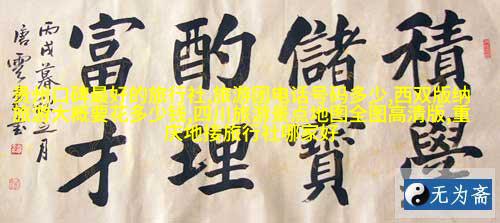 積學
儲寶
酌理
富才
丙戌暮之月
唐雲
州口碑最好的旅行社,旅游团电话号码多少,西双版纳
旅游大概要花多少钱,四川旅游景点地图全图高清版,重
庆地接旅行社哪家好
无为斋